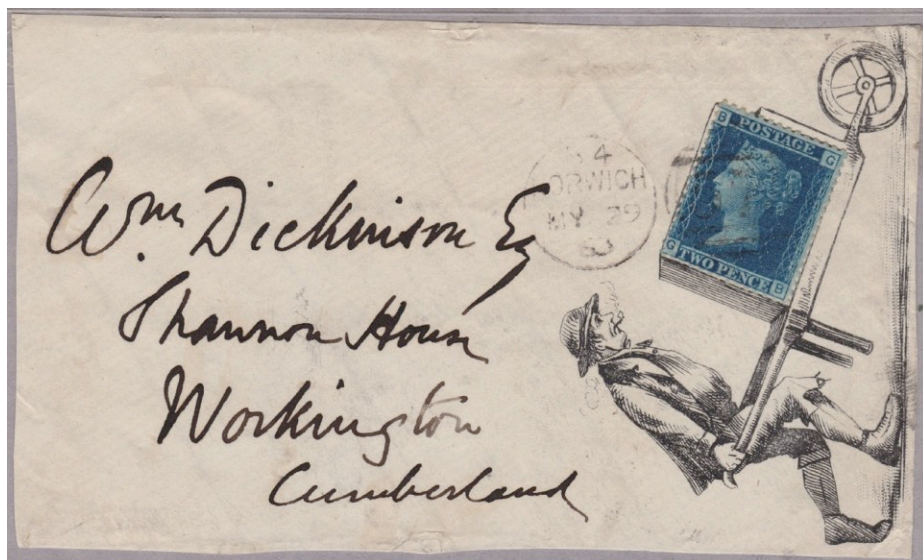 Wm Dickinson Esq
Shannon House
Workington
Cumberland
ORWICH
MY 29
63
B POSTAGE G
G TWO PENCE B